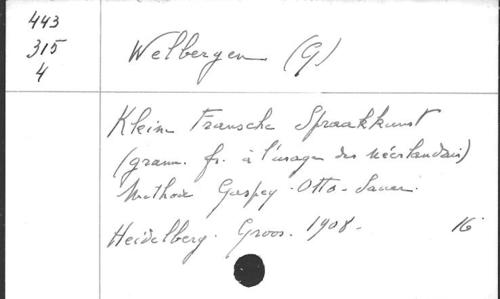 443
315
4
Welbergen (G)
Kleine Fransche Spraakkunst
(gramm. fr. à l'usage des néerlandais)
Methode Gaspey-Otto-Sauer.
Heidelberg. Groos. 1908. 16